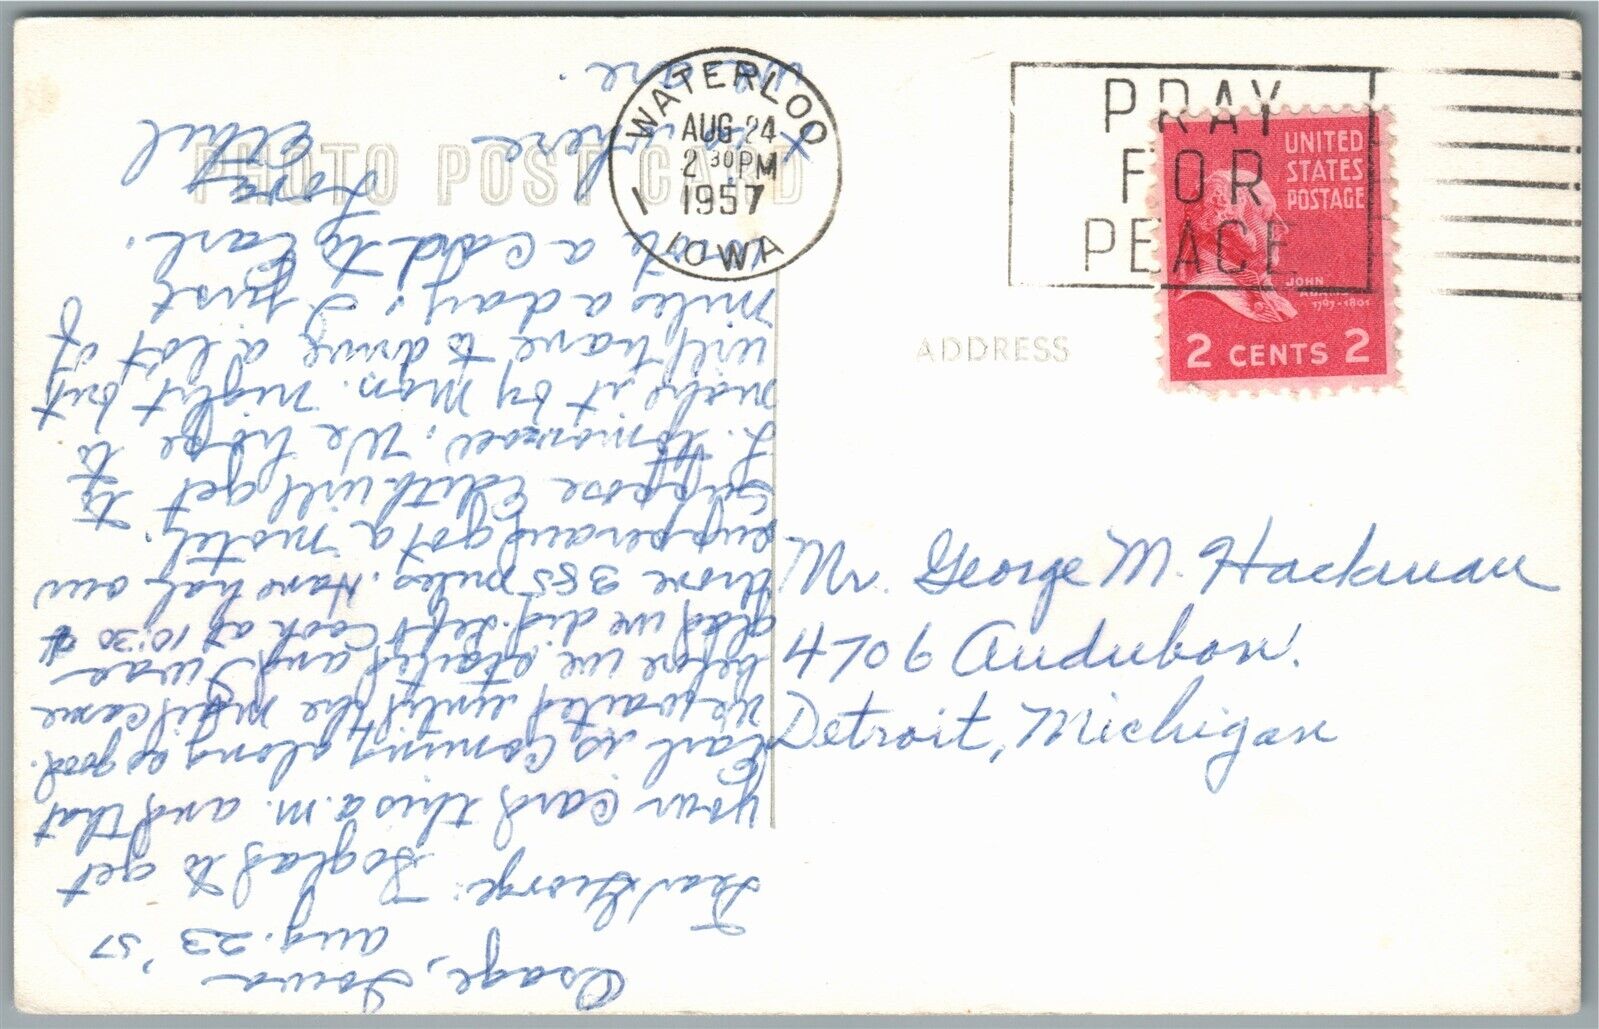 PHOTO POST CARD
WATERLOO
AUG 24
2 30 PM
1957
IOWA
PRAY
FOR
PEACE
UNITED
STATES
POSTAGE
JOHN
1797-1801
2 CENTS 2
ADDRESS
Mr. George M. Hackman
4706 Audubon.
Detroit, Michigan
Osage, Iowa
Aug. 23 '57
Dear George: So glad to get
your card this a.m. and that
Earl is coming along so good.
We waited until the mail came
before we started and I was
glad we did. Left Cook at 10:30 &
drove 385 miles. Have had our
supper and got a motel.
Suppose Edith will get to
L. tomorrow. We hope to
make it by Mon. night but
will have to drive a lot of
miles a day. I just
wrote a card to Earl.
Love,
Ethel
here
we are.